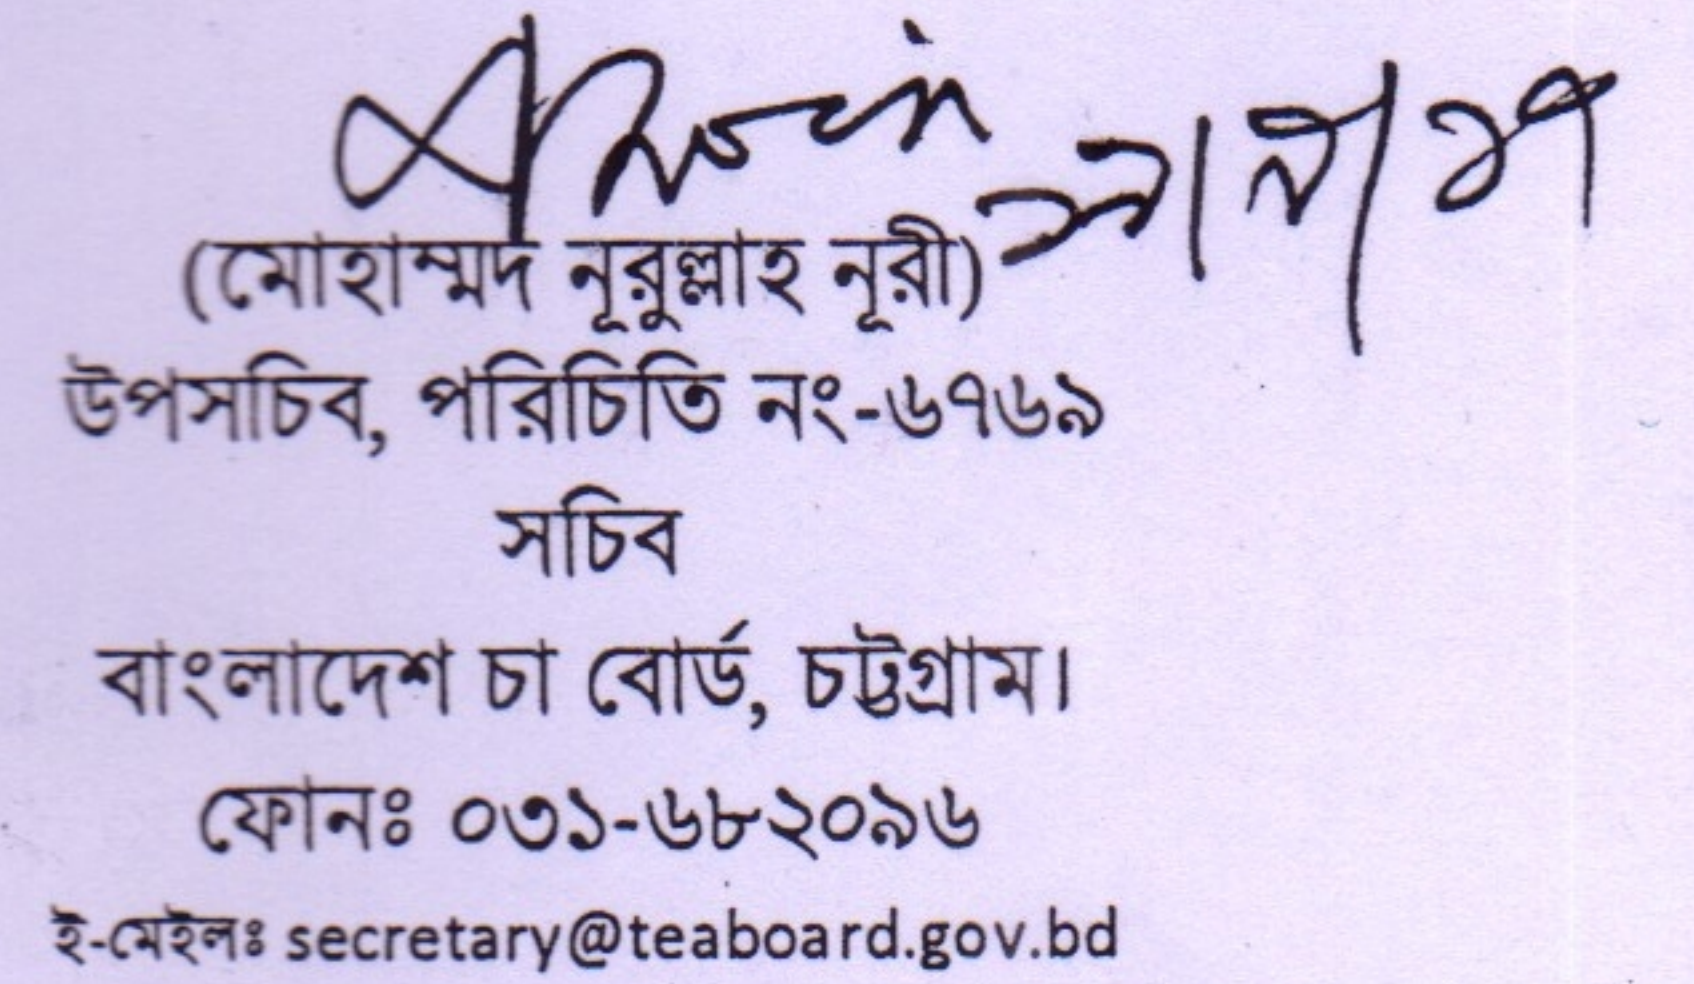 (মোহাম্মদ নূরুল্লাহ নূরী)
উপসচিব, পরিচিতি নং-৬৭৬৯
সচিব
বাংলাদেশ চা বোর্ড, চট্টগ্রাম।
ফোনঃ ০৩১-৬৮২০৯৬
ই-মেইলঃ secretary@teaboard.gov.bd